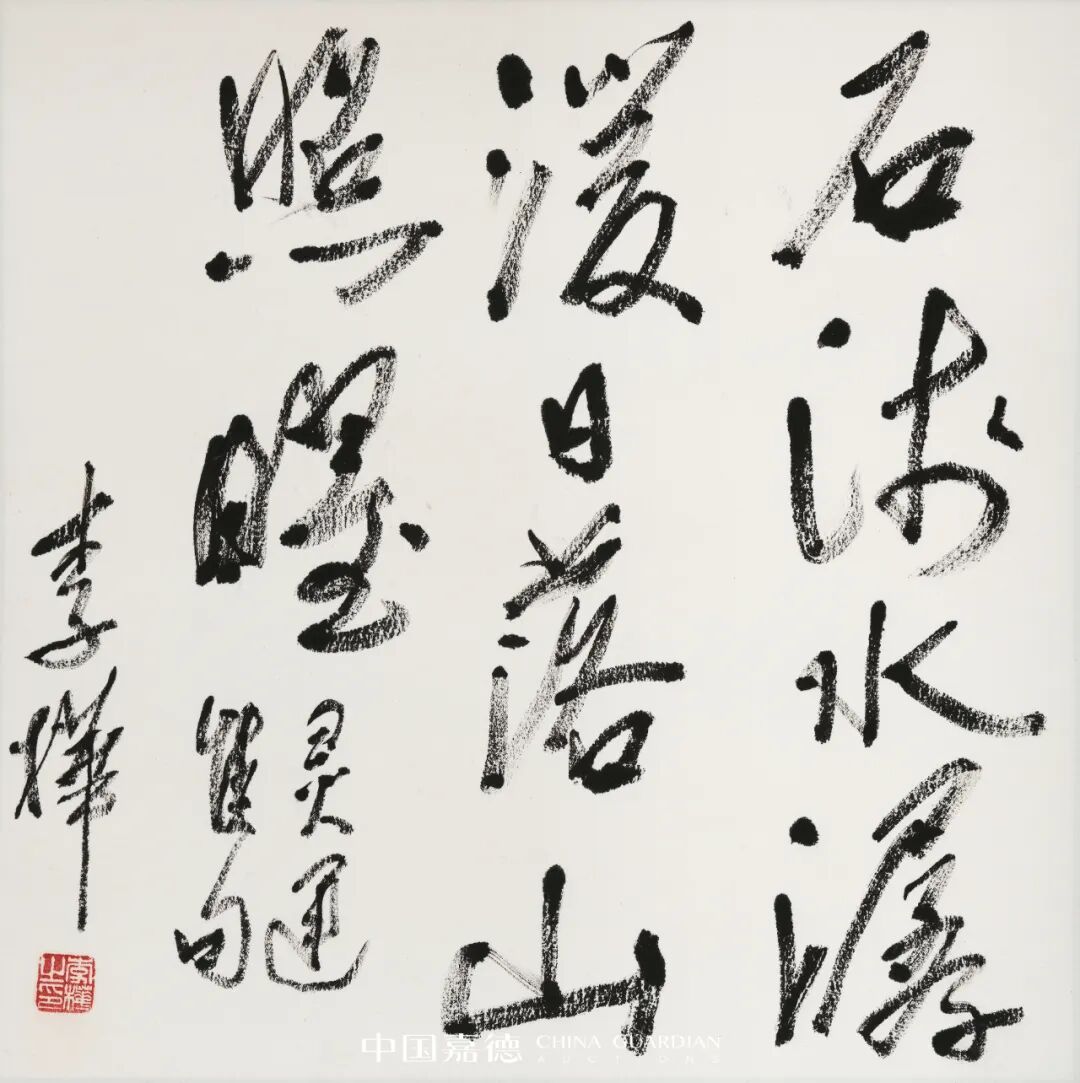 石浅水潺
湲日落山
照曜
灵運
佳句
李樺
李樺之印
中国嘉德 CHINA GUARDIAN
AUCTIONS